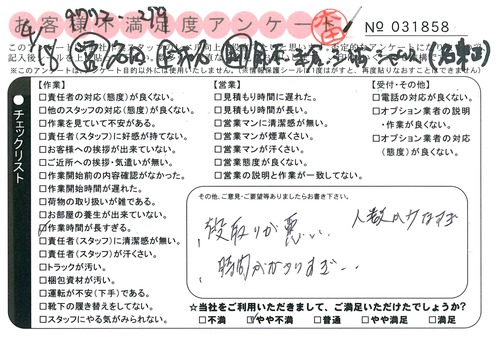 お客様不満足度アンケート
№ 031858
●チェックリスト
【作業】
□責任者の対応(態度)が良くない。
□他のスタッフの対応(態度)が良くない。
□作業を見ていて不安がある。
□責任者(スタッフ)に好感が持てない。
□お客様への挨拶が出来ていない。
□ご近所への挨拶・気遣いが無い。
□作業開始前の内容確認がなかった。
□作業開始時間が遅れた。
□荷物の取り扱いが雑である。
□お部屋の養生が出来ていない。
☑作業時間が長すぎる。
□責任者(スタッフ)に清潔感が無い。
□責任者(スタッフ)が汗くさい。
□トラックが汚い。
□梱包資材が汚い。
□運転が不安(下手)である。
□靴下の履き替えをしてない。
□スタッフにやる気がみられない。
【営業】
□見積もり時間に遅れた。
□見積もり時間が長い。
□営業マンに清潔感が無い。
□営業マンが煙草くさい。
□営業マンが汗くさい。
□営業態度が良くない。
□営業の説明と作業が一致してない。
【受付・その他】
□電話の対応が良くない。
□オプション業者の説明
・作業が良くない。
□オプション業者の対応
(態度)が良くない。
その他、ご意見・ご要望等ありましたらお書き下さい。
段取りが悪い、人数が少なすぎ
時間がかかりすぎ…
☆当社をご利用いただきまして、ご満足いただけたでしょうか?
□不満 ☑やや不満 □普通 □やや満足 □満足